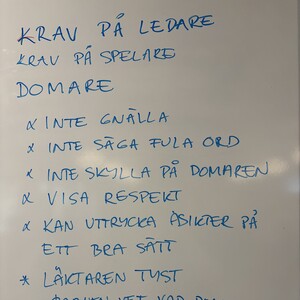 KRAV PÅ LEDARE
KRAV PÅ SPELARE
DOMARE
* INTE GNÄLLA
* INTE SÄGA FULA ORD
* INTE SKYLLA PÅ DOMAREN
* VISA RESPEKT
* KAN UTTRYCKA ÅSIKTER PÅ
ETT BRA SÄTT
* LÄKTAREN TYST